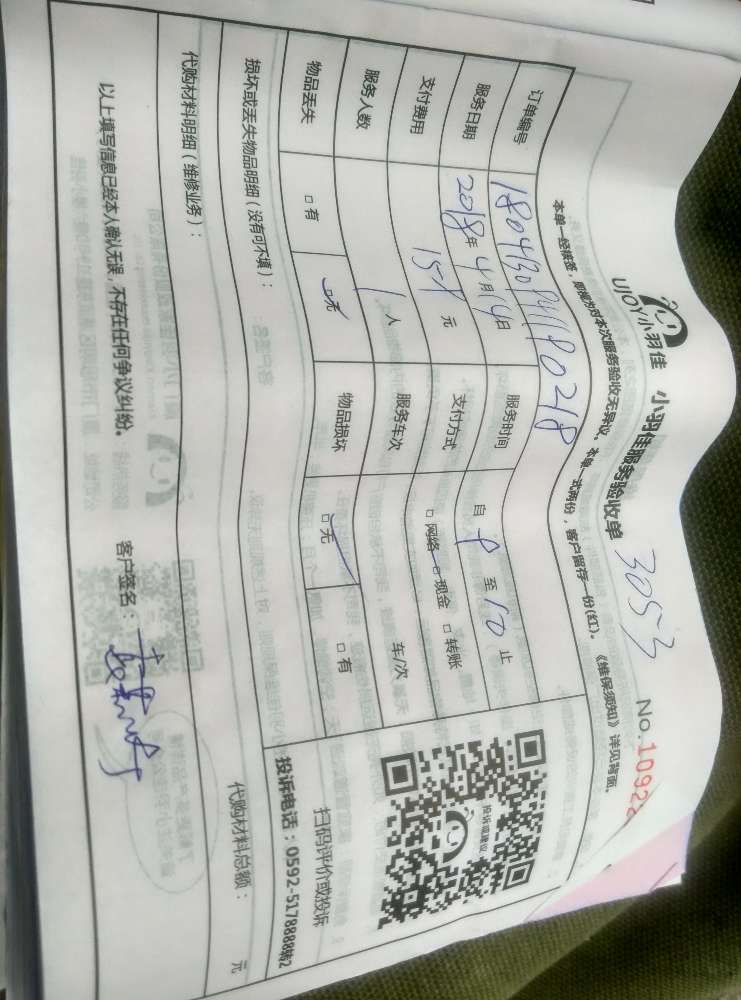 UJOY小羽佳 小羽佳服务验收单 3053 No.10922
本单一经核签，即视为对本次服务验收无异议。本单一式两份，客户留存一份(红)。《维保须知》详见背面。
订单编号
服务日期 2018年4月14日 服务时间 自 8 至 10 止
支付费用 158元 支付方式 □网络 □现金 □转账
服务人数 1人 服务车次 车/次
物品丢失 □有 □无 物品损坏 □无 □有
投诉建议
扫码评价或投诉
投诉电话：0592-5178888转2
损坏或丢失物品明细（没有可不填）：
代购材料明细（维修业务）： 代购材料总额： 元
以上填写信息已经本人确认无误，不存在任何争议纠纷。 客户签名：